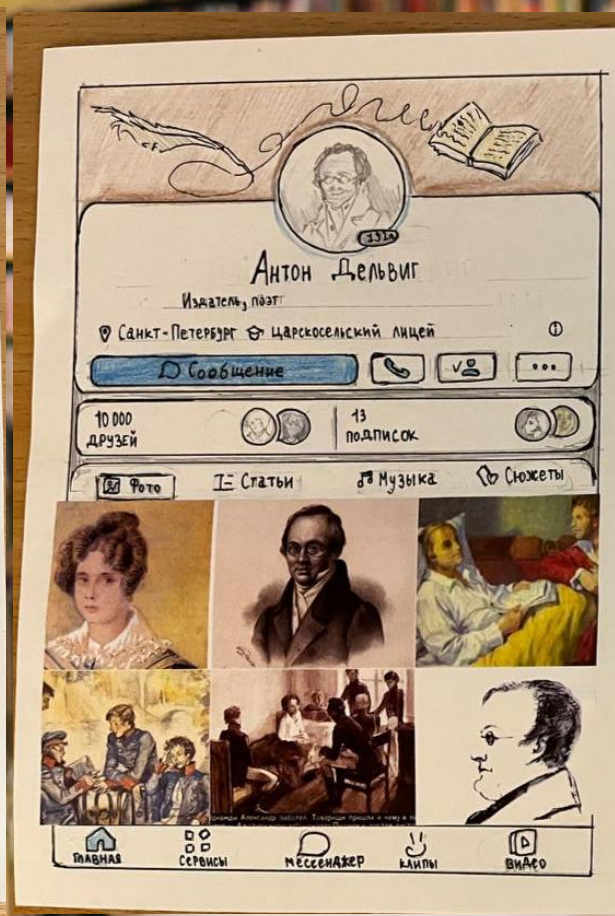 Антон Дельвиг
Издатель, поэт
Санкт-Петербург Царскосельский лицей
Сообщение
10 000 13
друзей подписок
Фото Статьи Музыка Сюжеты
Однажды Александр заболел. Товарищи пришли к нему в
Главная Сервисы Мессенджер Клипы Видео